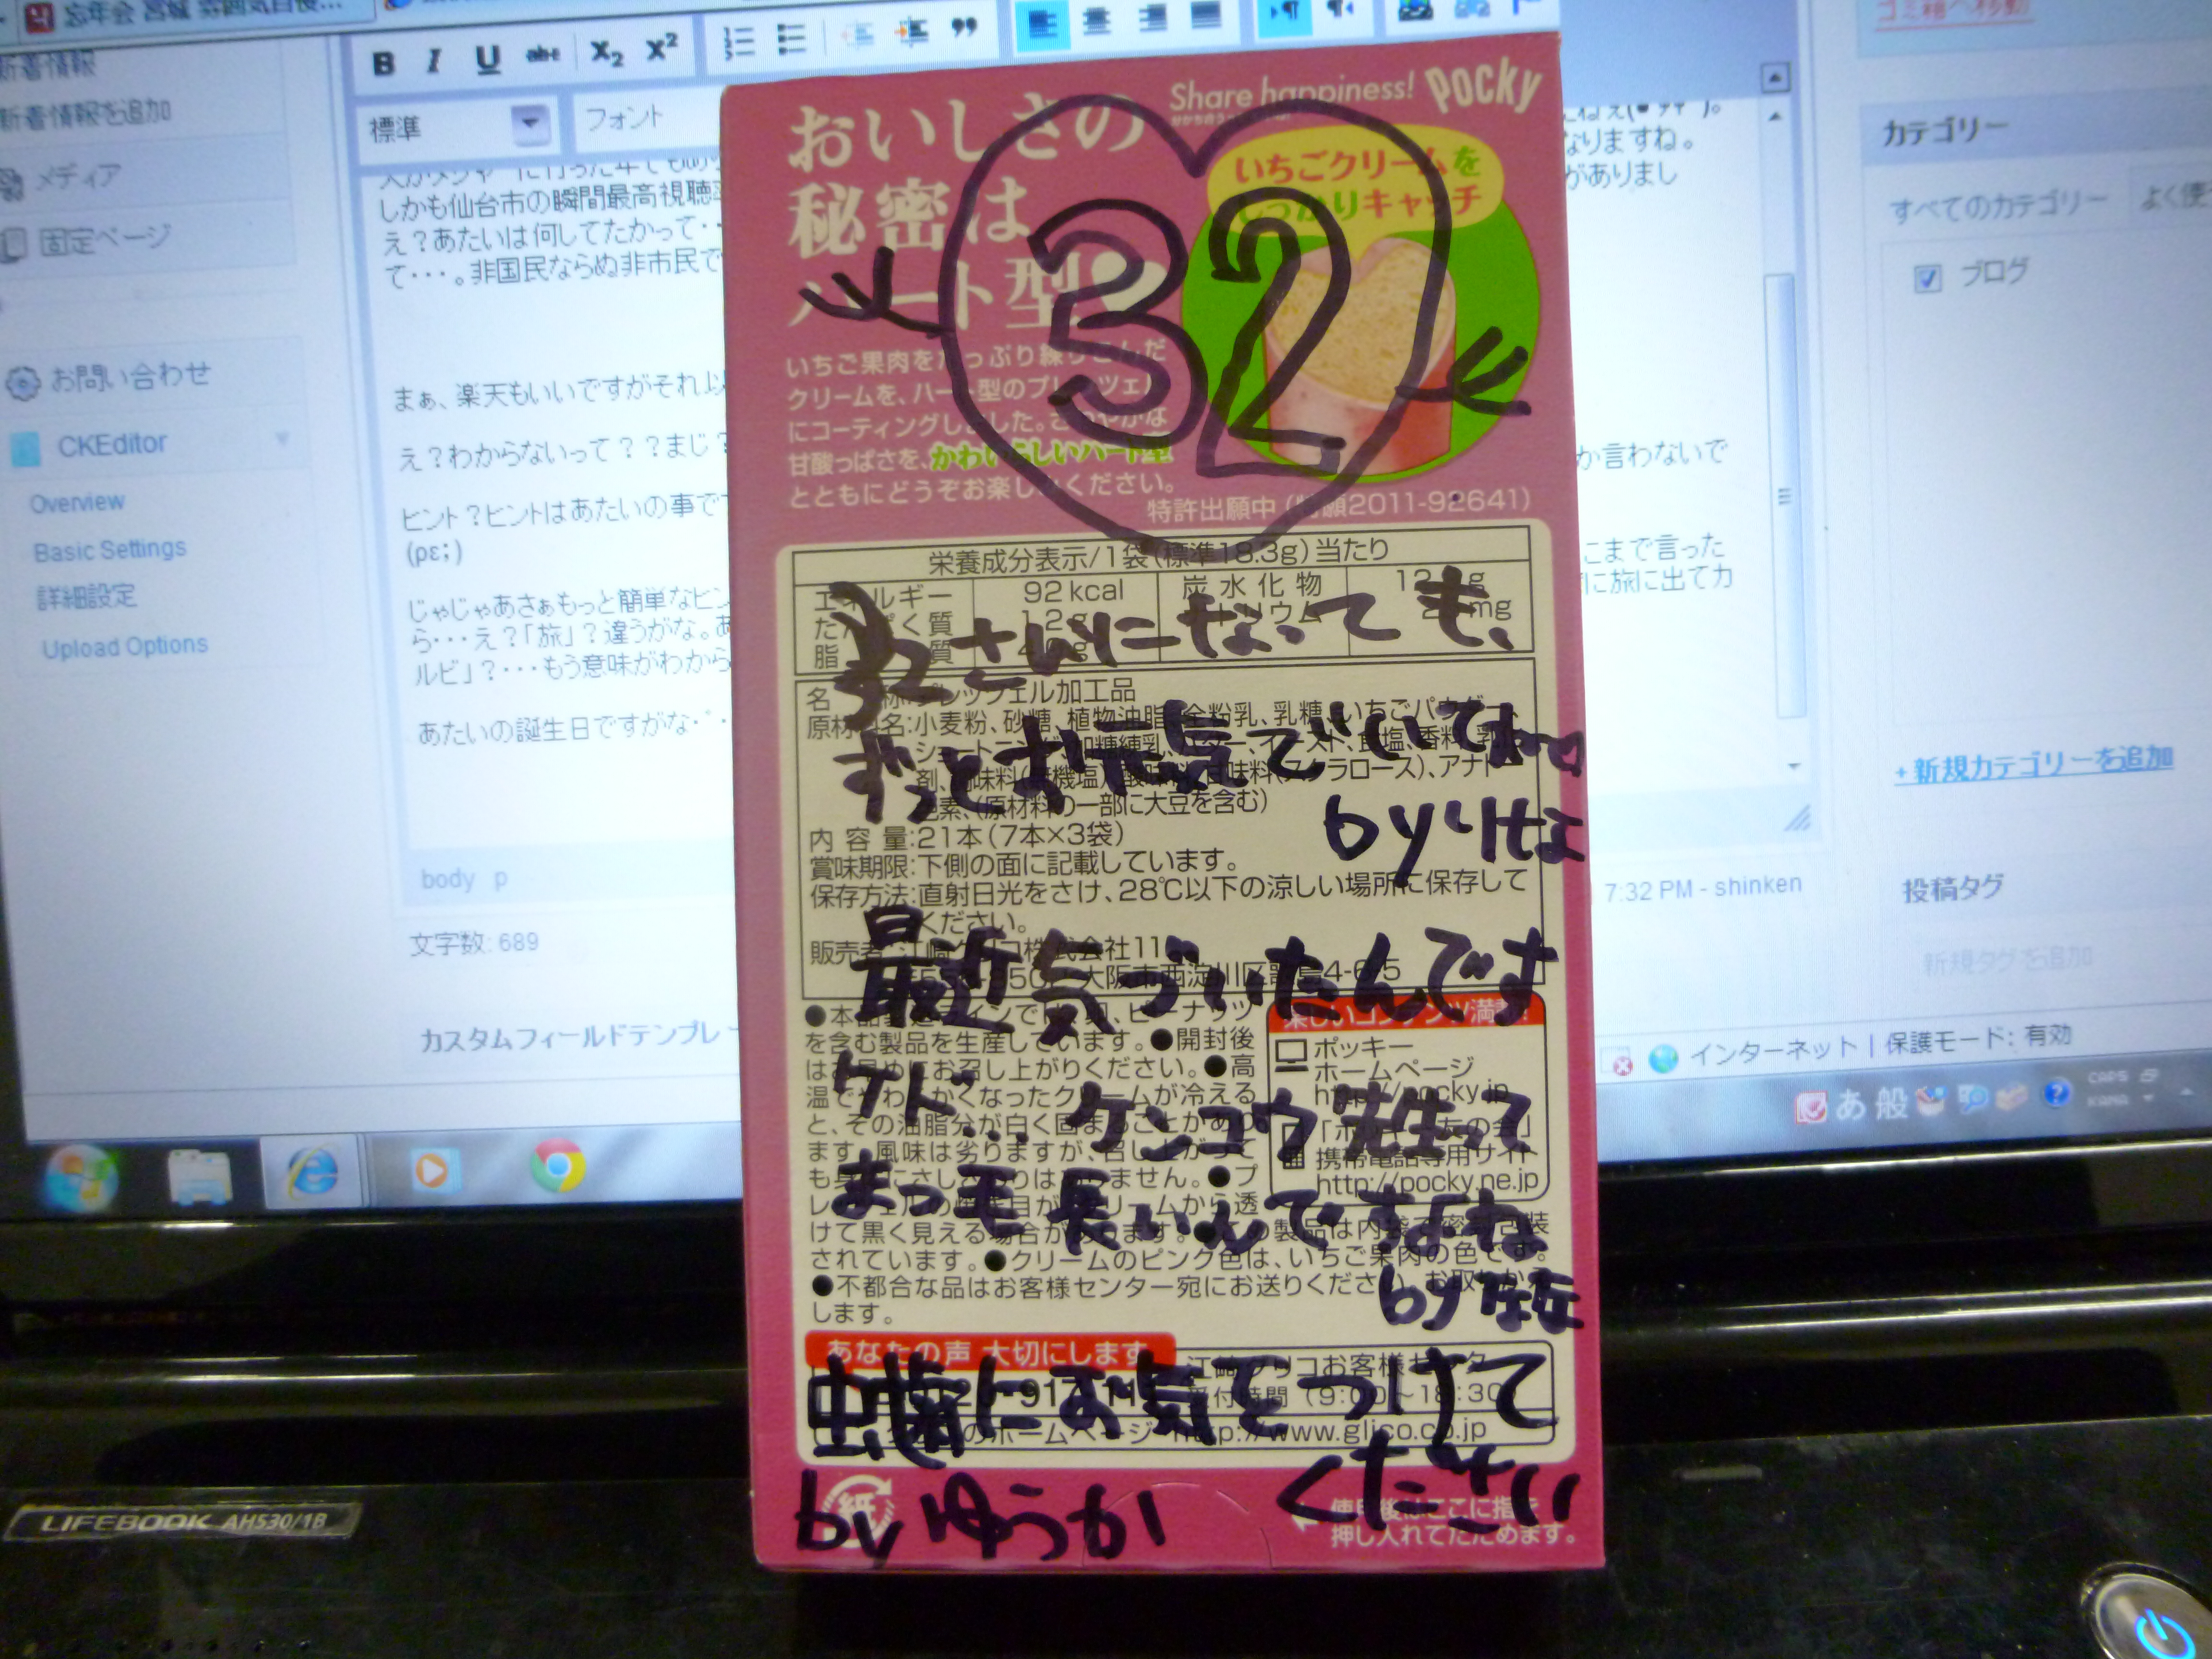 忘年会 宮城 雰囲気自慢...
新着情報
新着情報を追加
メディア
固定ページ
お問い合わせ
CKEditor
Overview
Basic Settings
詳細設定
Upload Options
B I U abc X₂ X²
標準
フォント
なりますね。
しかも仙台市の瞬間最高視聴
がありまし
え?あたいは何してたかって・・
て・・・。非国民ならぬ非市民で
まぁ、楽天もいいですがそれ以
え?わからないって??まじ?
か言わないで
ヒント?ヒントはあたいの事で
(ρε;)
こまで言った
じゃじゃあさぁもっと簡単なヒン
に旅に出てカ
ら・・・え?「旅」?違うがな。あ
ルビ」?・・・もう意味がわから
あたいの誕生日ですがな・゜・
body p
7:32 PM - shinken
文字数: 689
カスタムフィールドテンプレー
ゴミ箱へ移動
カテゴリー
すべてのカテゴリー
よく使
ブログ
+ 新規カテゴリーを追加
投稿タグ
新規タグを追加
インターネット | 保護モード: 有効
あ 般
CAPS
KANA
LIFEBOOK AH530/1B
Share happiness! Pocky
おいしさの
秘密は
ハート型
いちごクリームを
しっかりキャッチ
32
いちご果肉をたっぷり練りこんだ
クリームを、ハート型のプレッツェル
にコーティングしました。さわやかな
甘酸っぱさを、かわいらしいハート型
とともにどうぞお楽しみください。
特許出願中(特願2011-92641)
栄養成分表示/1袋(標準18.3g)当たり
エネルギー 92kcal 炭水化物
たんぱく質 1.2g ナトリウム
脂質
32さんになっても、
名称:プレッツェル加工品
原材料名:小麦粉、砂糖、植物油脂、全粉乳、乳糖、いちごパウダー、
ショートニング、加糖練乳、バター、イースト、食塩、香料、乳化
剤、調味料(無機塩)、酸味料、甘味料(スクラロース)、アナトー
色素、(原材料の一部に大豆を含む)
ずっとお元気でいてね
byりな
内容量:21本(7本×3袋)
賞味期限:下側の面に記載しています。
保存方法:直射日光をさけ、28℃以下の涼しい場所に保存して
ください。
販売者:江崎グリコ株式会社
大阪市西淀川区歌島4-6-5
最近気づいたんです
ケド… ケンコウ先生って
まつ毛長いんですよね
●本品製造ラインでは、卵、ピーナッツ
を含む製品を生産しています。●開封後
はお早めにお召し上がりください。●高
温でやわらかくなったクリームが冷える
と、その油脂分が白く固まることがあり
ます。風味は劣りますが、召し上がって
も身体にさしさわりはありません。●プ
レッツェルの焼き目がクリームから透
けて黒く見える場合があります。●この製品は内袋で密封包装
されています。●クリームのピンク色は、いちご果肉の色です。
●不都合な品はお客様センター宛にお送りください。お取りかえ
します。
楽しいコンテンツ満載!
ポッキー
ホームページ
http://pocky.jp
携帯電話専用サイト
http://pocky.ne.jp
あなたの声 大切にします
江崎グリコお客様センター
受付時間(9:00~18:30)
のホームページ http://www.glico.co.jp
虫歯にお気をつけて
ください
by ゆうか
紙
使用後はここに指を
押し入れてたためます。